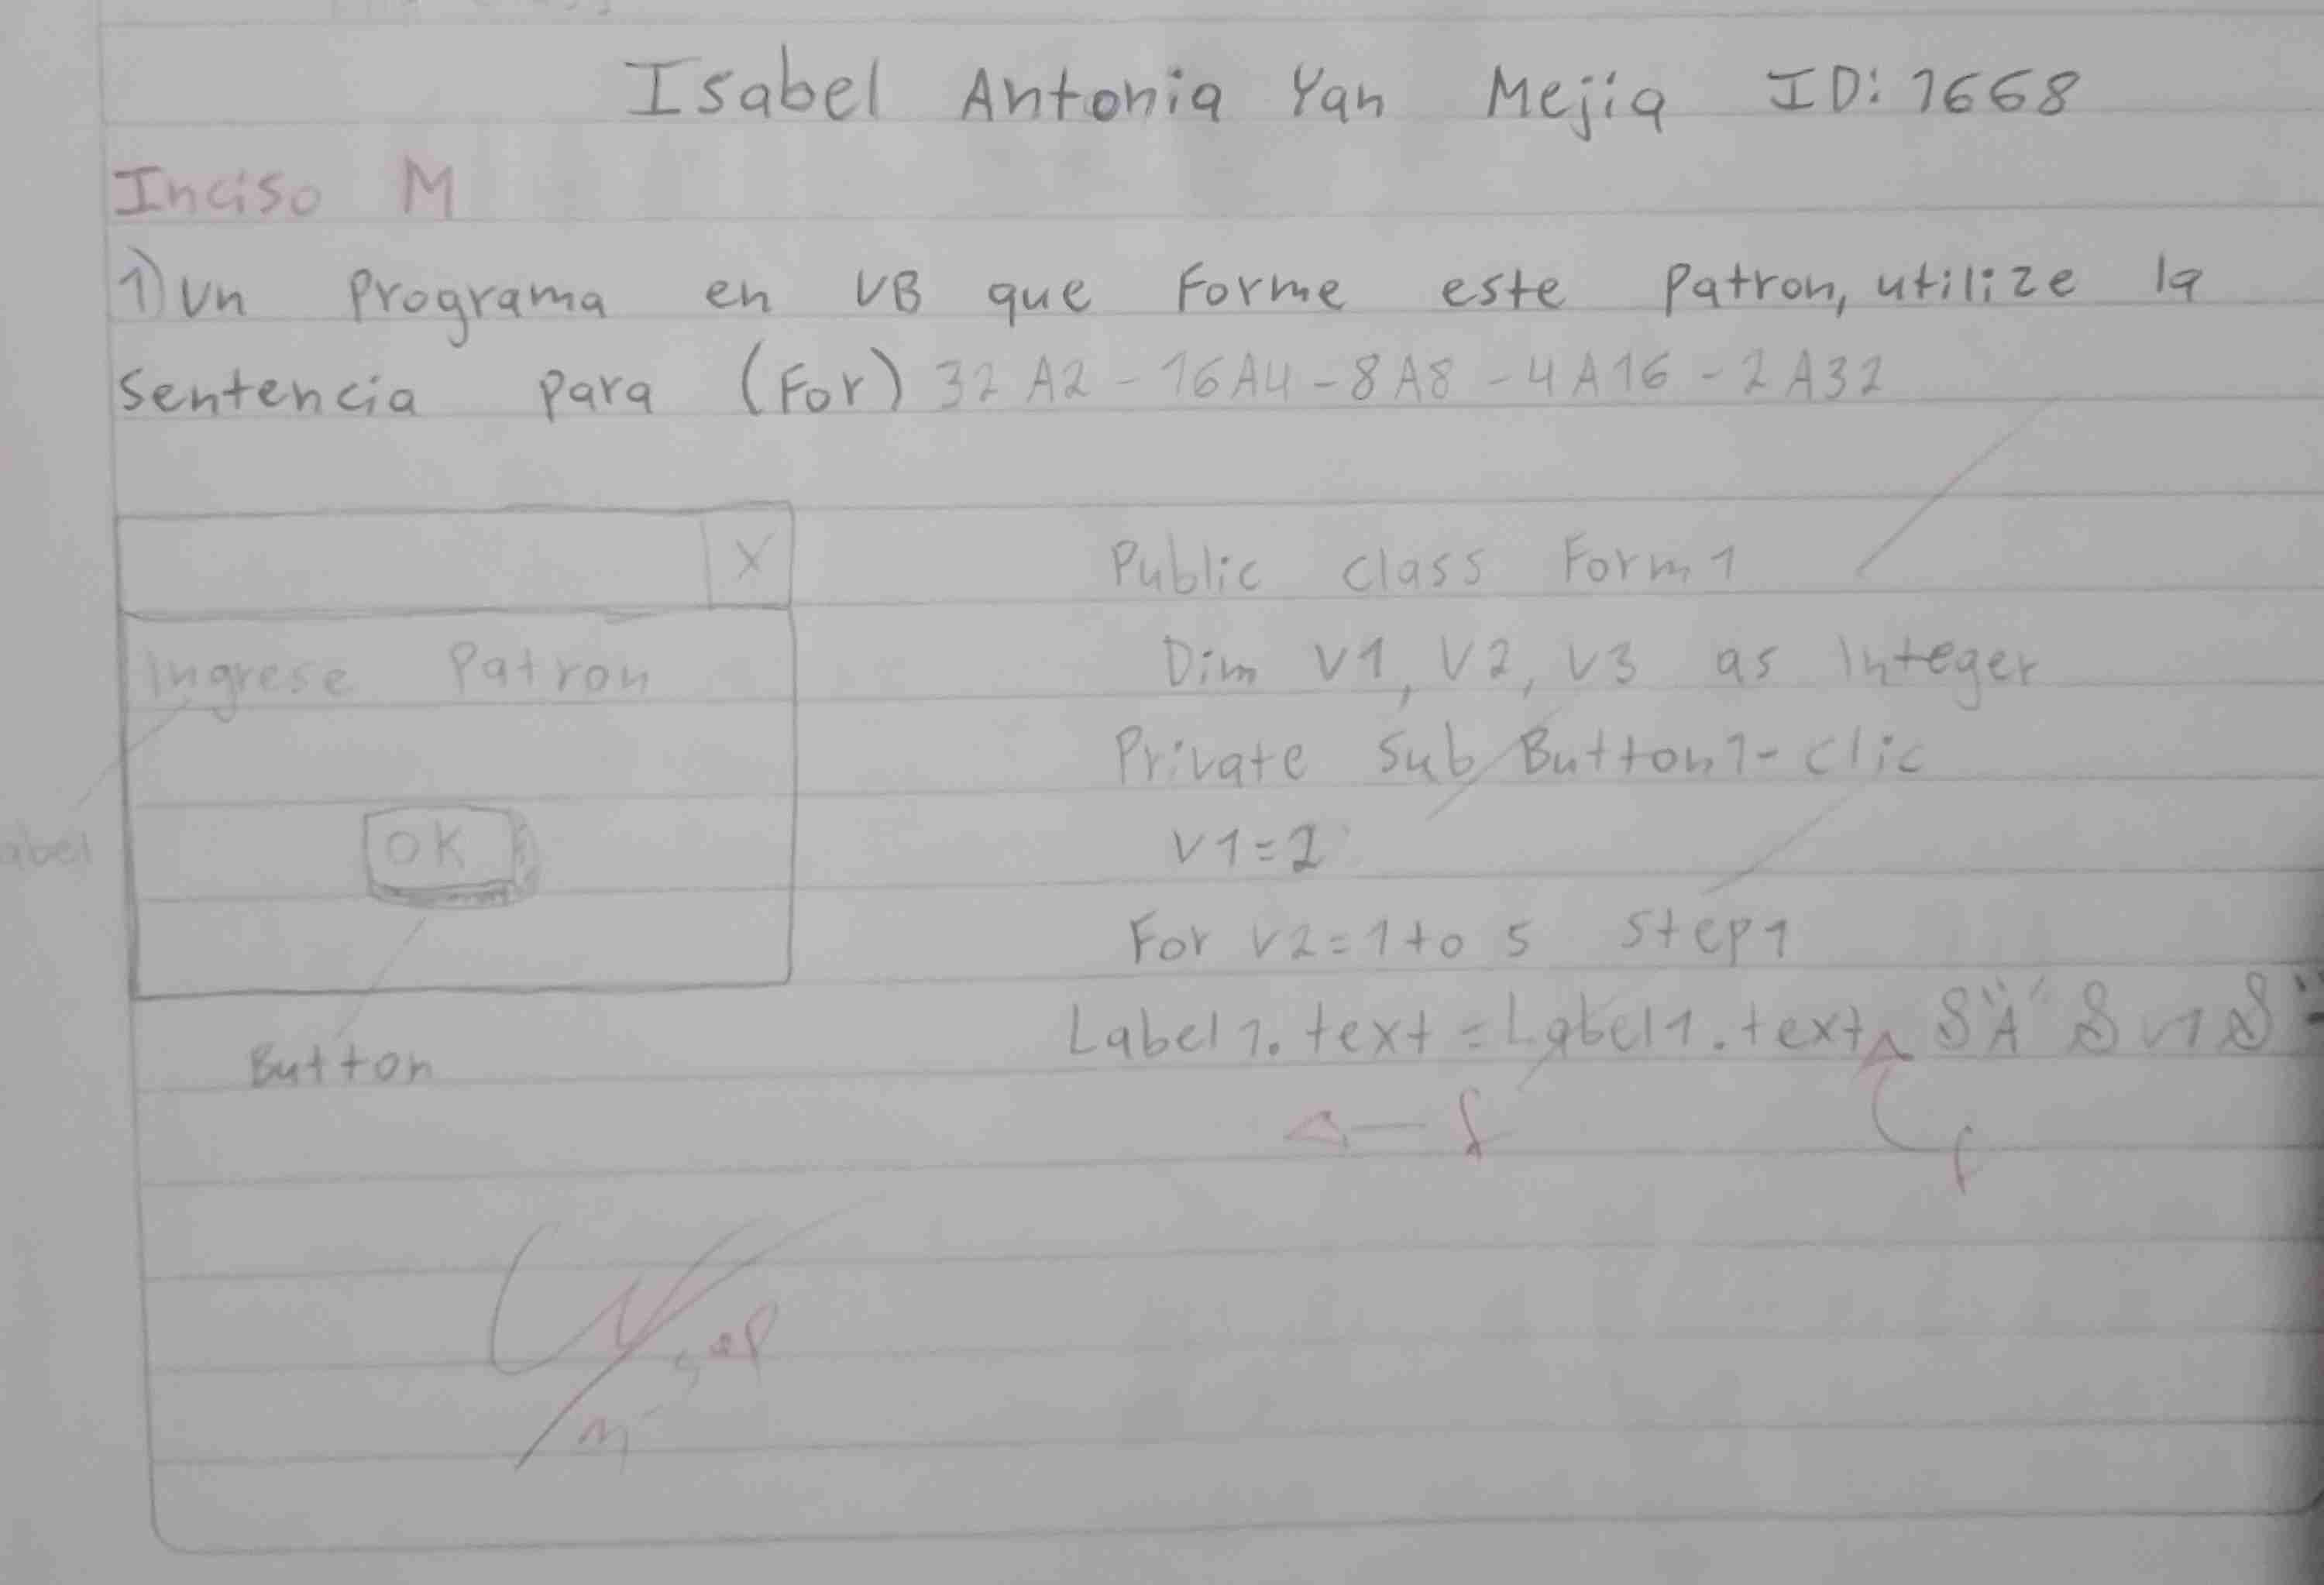 Isabel Antonia Yan Mejia ID: 1668
Inciso M
1) Un Programa en VB que Forme este Patron, utilize la
Sentencia para (For) 32 A2 - 16A4 - 8A8 - 4A16 - 2A32
X
Ingrese Patron
OK
Button
Public class Form1
Dim V1, V2, V3 as Integer
Private Sub Button1-clic
V1=2
For V2=1 to 5 Step1
Label1.text = Label1.text & "A" & V1 & "-